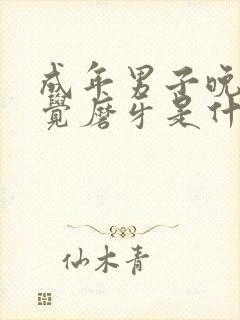 成年男子晚
覺磨牙是什
仙木青